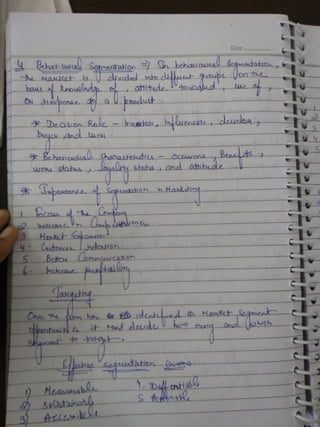 Date
4) Behavioural Segmentation => In behavioural Segmentation,
the market is divided into different groups on the
basis of knowledge of, attitude toward, use of,
or response to a product.
* Decision Role - Influencer, decider,
buyer and user.
* Behavioural Characteristics - occasions, Benefits,
users status, loyalty status, and attitude
* Importance of Segmentation in Marketing
1 Focus of the Company
2 Increase in Competitiveness
3 Market Expansion
4. Customer retention
5 Better Communication
6. Increase profitability
Targeting
Once the firm has identified its Market Segment
opportunities it must decide how many and
segment to target.
Effective Segmentation
1) Measurable 4. Differentiable
2) Substainable 5
3) Accessible